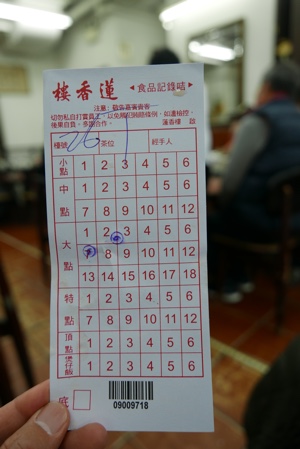 樓香蓮
◆食品記錄咭◆
注意：敬告嘉賓貴客
切勿私自打賞員工，以免觸犯賄賂條例，如遭檢控，
後果自負，多面合作。 蓮香樓 啟
檯號 26 茶位 1 經手人
小點 1 2 3 4 5 6
中點 1 2 3 4 5 6
7 8 9 10 11 12
大點 1 2 3 4 5 6
7 8 9 10 11 12
13 14 15 16 17 18
特點 1 2 3 4 5 6
7 8 9 10 11 12
頂點 1 2 3 4 5 6
煲仔飯 1 2 3 4 5 6
底
09009718